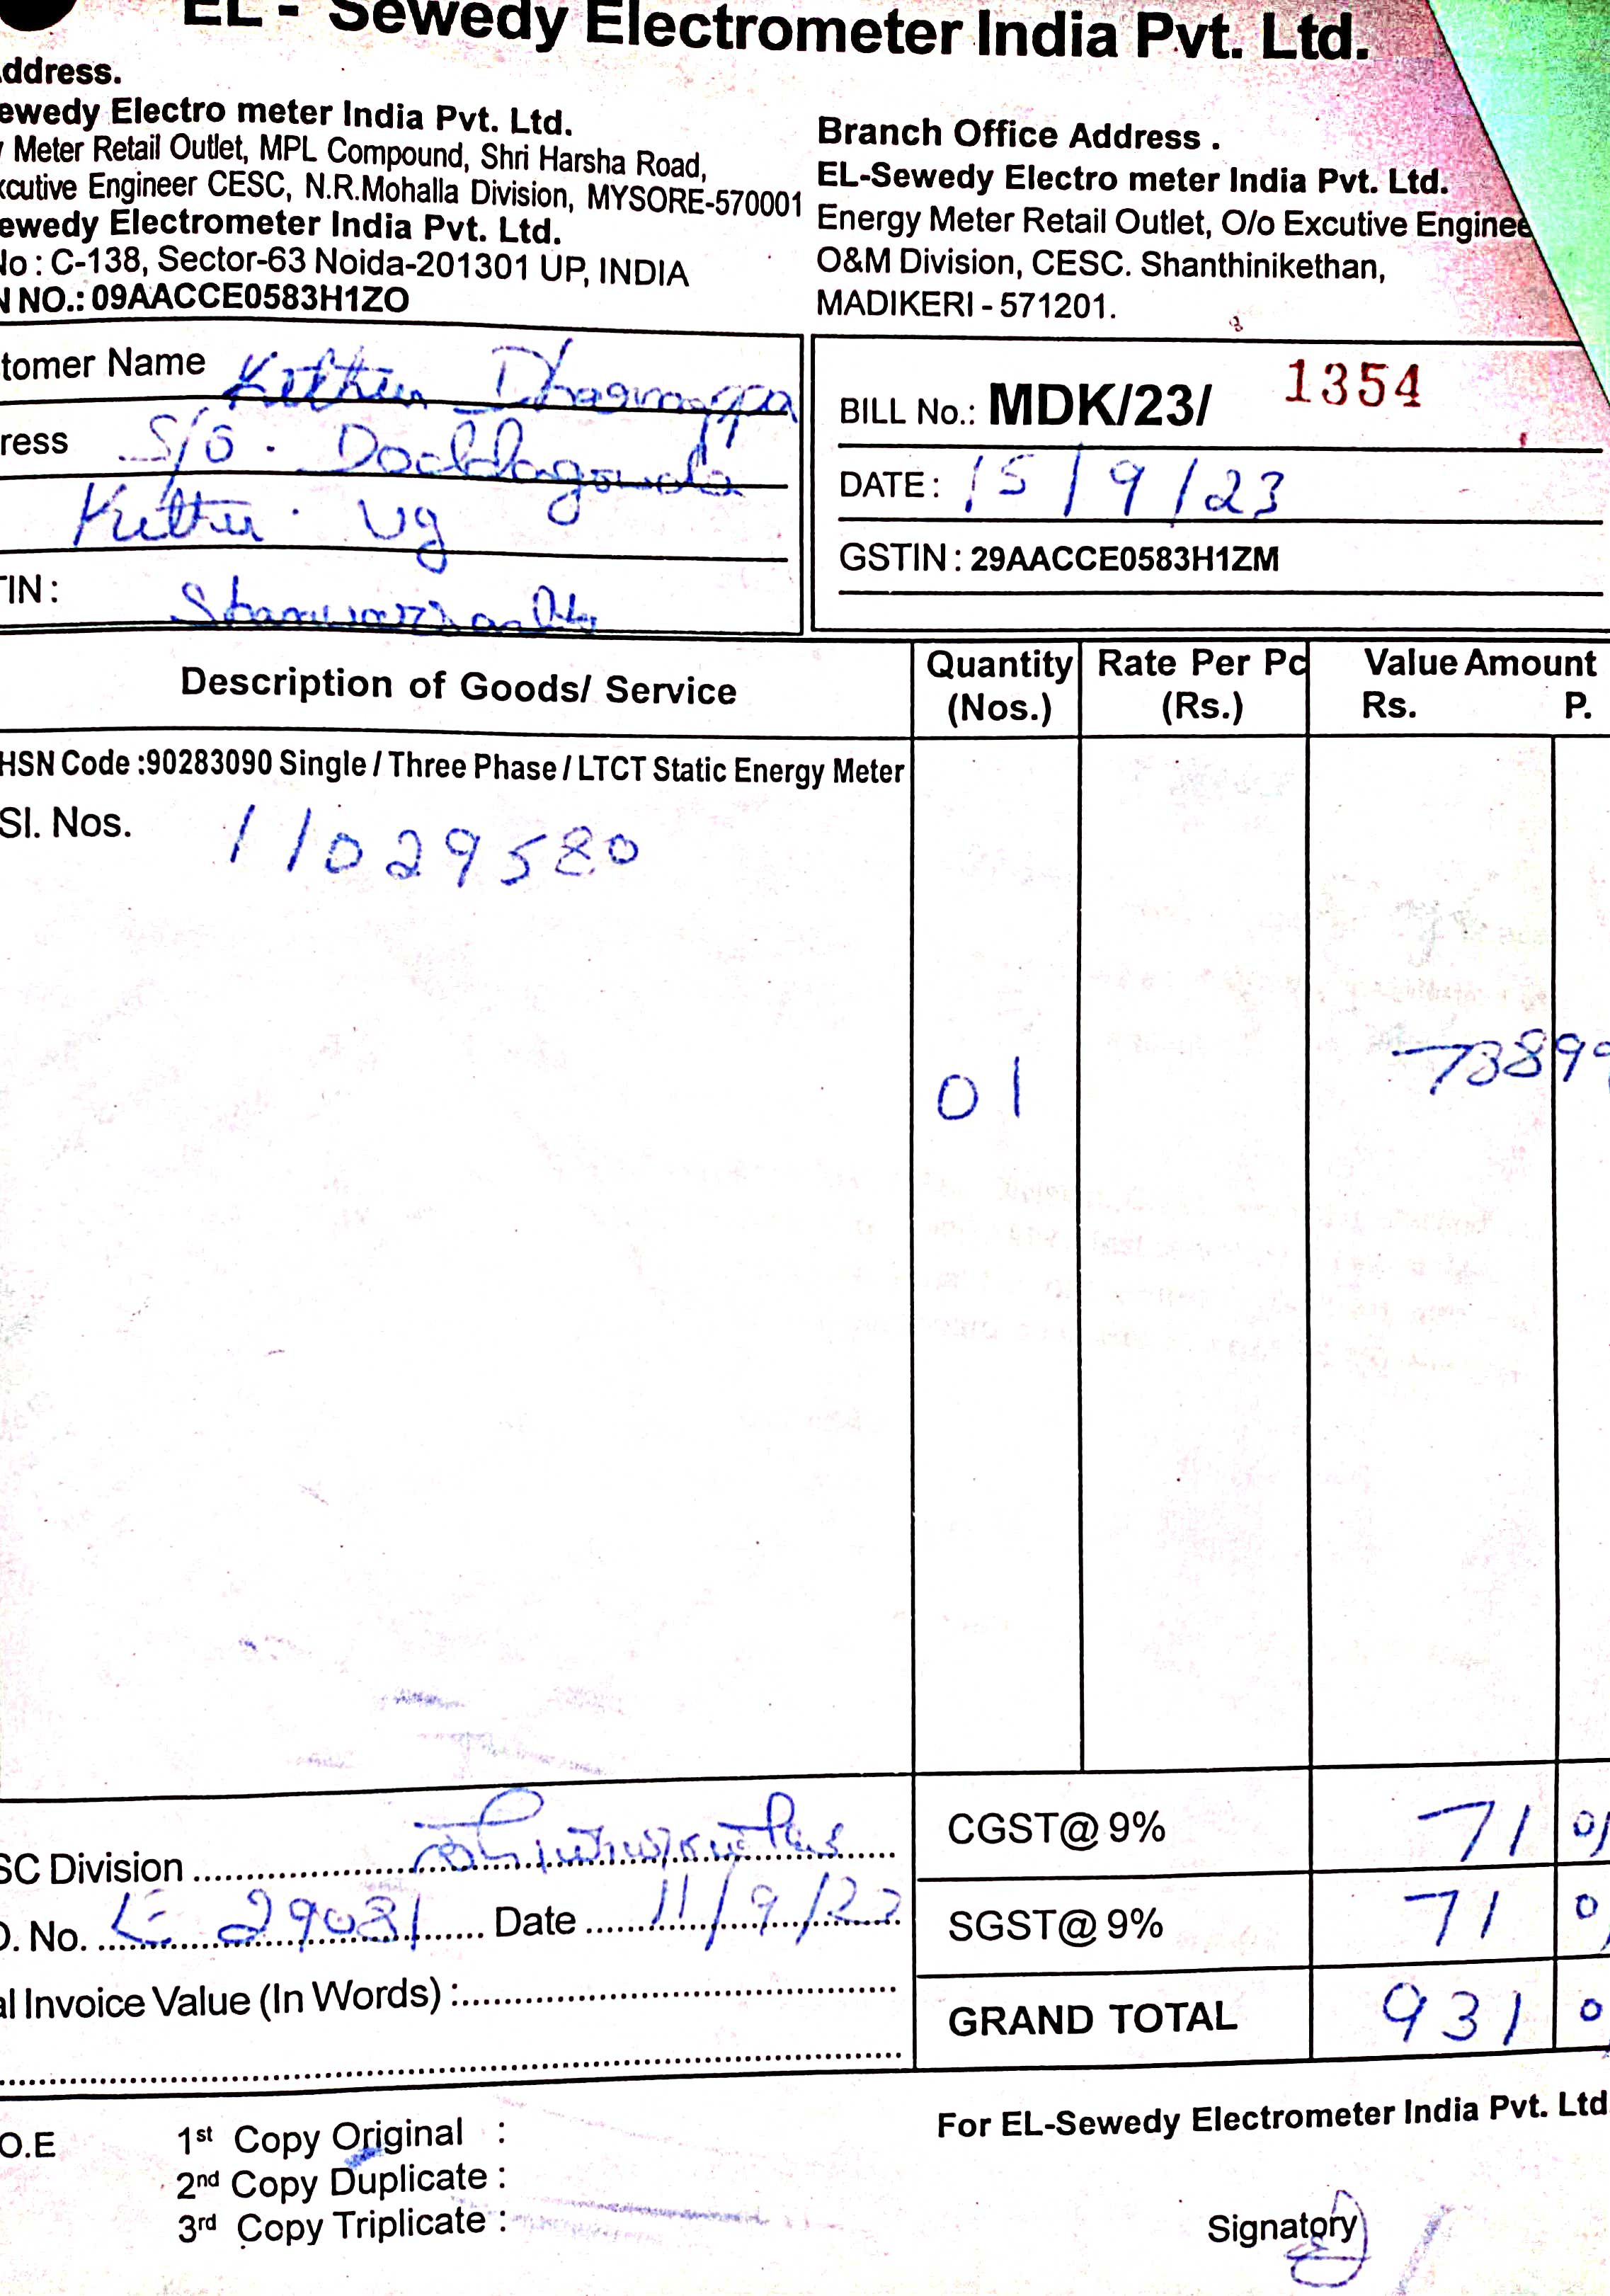 EL - Sewedy Electrometer India Pvt. Ltd.
ddress.
ewedy Electro meter India Pvt. Ltd.
Meter Retail Outlet, MPL Compound, Shri Harsha Road,
xcutive Engineer CESC, N.R.Mohalla Division, MYSORE-570001
ewedy Electrometer India Pvt. Ltd.
No : C-138, Sector-63 Noida-201301 UP, INDIA
N NO.: 09AACCE0583H1ZO
Branch Office Address .
EL-Sewedy Electro meter India Pvt. Ltd.
Energy Meter Retail Outlet, O/o Excutive Enginee
O&M Division, CESC. Shanthinikethan,
MADIKERI - 571201.
tomer Name
ress S/o. Doddagowda
Vg
TIN :
BILL No.: MDK/23/ 1354
DATE : 15/9/23
GSTIN : 29AACCE0583H1ZM
Description of Goods/ Service
Quantity (Nos.)
Rate Per Pc (Rs.)
Value Amount
Rs. P.
HSN Code :90283090 Single / Three Phase / LTCT Static Energy Meter
Sl. Nos. 11029580
01 789
SC Division
O. No. 29081 Date 11/9/23
al Invoice Value (In Words) :
CGST@ 9% 71 0
SGST@ 9% 71 0
GRAND TOTAL 931 0
O.E
1st Copy Original :
2nd Copy Duplicate :
3rd Copy Triplicate :
For EL-Sewedy Electrometer India Pvt. Ltd
Signatory